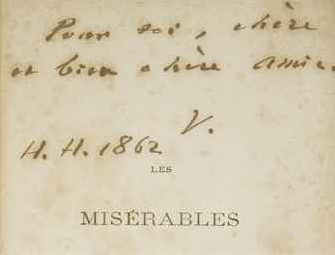 Pour toi, chère
et bien chère amie.
V.
H. H. 1862
LES
MISÉRABLES